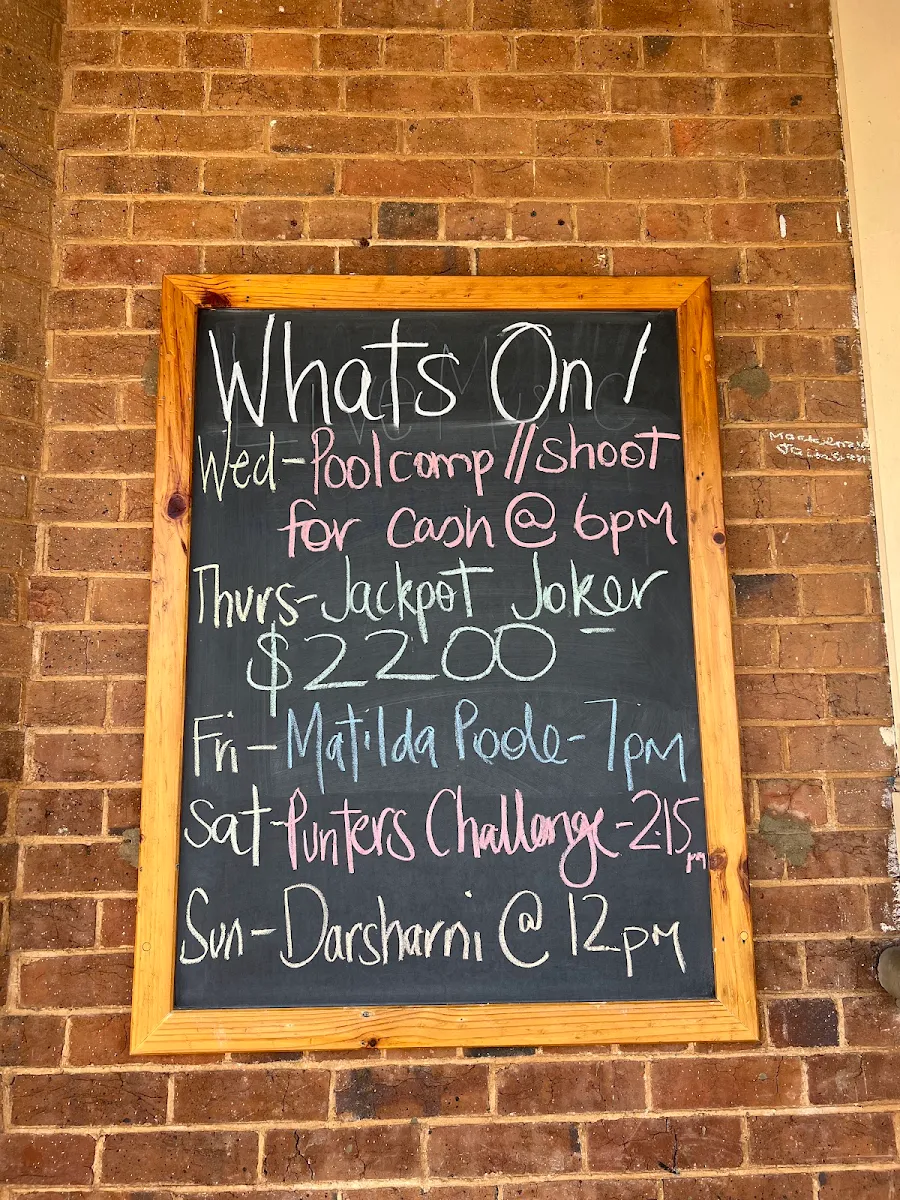 Whats On!
Wed - Poolcomp // shoot
for cash @ 6pm
Thurs - Jackpot Joker
$2200
Fri - Matilda Poole - 7pm
Sat - Punters Challange - 2.15pm
Sun - Darsharni @ 12pm